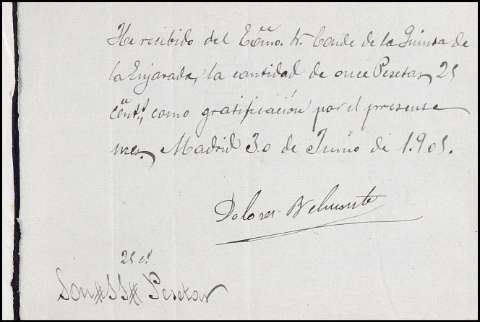 He recibido del Excmo. Sr. Conde de la Quinta de
la Enjarada, la cantidad de once Pesetas, 25
cents, como gratificación por el presente
mes. Madrid 30 de Junio de 1.905.
Dolores Belmonte
25 cs
Son #11# Pesetas